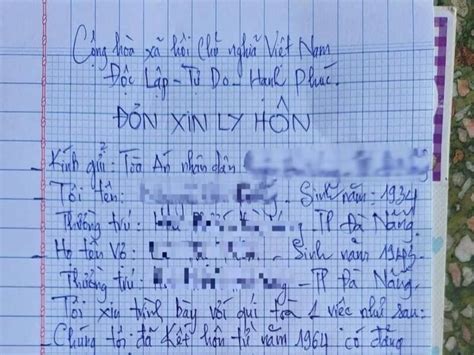 Cộng hòa xã hội Chủ nghĩa Việt Nam
Độc Lập - Tự Do - Hạnh Phúc.
ĐƠN XIN LY HÔN
Kính gửi: Tòa Án nhân dân
Tôi tên: Sinh năm: 1934
Thường trú: TP Đà Nẵng.
Họ tên Vợ: Sinh năm
Thường trú: TP Đà Nẵng.
Tôi xin trình bày với quí tòa 1 việc như sau:
Chúng tôi đã Kết hôn từ năm 1964 có đăng